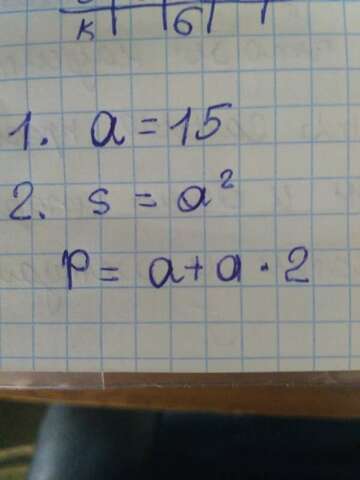 к б
1. a = 15
2. s = a²
p = a + a · 2